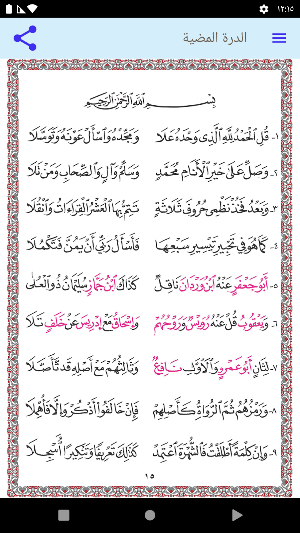 ١٢:١٥
الدرة المضية
بِسْمِ اللَّهِ الرَّحْمَٰنِ الرَّحِيمِ
١- قُلِ الْحَمْدُ لِلَّهِ الَّذِي وَحْدَهُ عَلَا وَمَجِّدْهُ وَاسْأَلْ عَوْنَهُ وَتَوَسَّلَا
٢- وَصَلِّ عَلَى خَيْرِ الْأَنَامِ مُحَمَّدٍ وَسَلِّمْ وَآلٍ وَالصِّحَابِ وَمَنْ تَلَا
٣- وَبَعْدُ فَخُذْ نَظْمِي حُرُوفَ ثَلَاثَةٍ تَتِمُّ بِهَا الْعَشْرُ الْقِرَاءَاتُ وَانْقُلَا
٤- كَمَا هُوَ فِي تَحْبِيرِ تَيْسِيرِ سَبْعِهَا فَأَسْأَلُ رَبِّي أَنْ يَمُنَّ فَتَكْمُلَا
٥- أَبُو جَعْفَرٍ عَنْهُ ابْنُ وَرْدَانَ نَاقِلٌ كَذَاكَ ابْنُ جَمَّازٍ سُلَيْمَانُ ذُو الْعُلَى
٦- وَيَعْقُوبُ قُلْ عَنْهُ رُوَيْسٌ وَرَوْحُهُمْ وَإِسْحَاقُ مَعْ إِدْرِيسَ عَنْ خَلَفٍ تَلَا
٧- لِثَانٍ أَبُو عَمْرٍو وَالْاوَّلِ نَافِعٌ وَثَالِثُهُمْ مَعْ أَصْلِهِ قَدْ تَأَصَّلَا
٨- وَرَمْزُهُمُ ثُمَّ الرُّوَاةُ كَأَصْلِهِمْ فَإِنْ خَالَفُوا أَذْكُرْ وَإِلَّا فَأُهْمِلَا
٩- وَإِنْ كِلْمَةً أَطْلَقْتُ فَالشُّهْرَةَ اعْتَمِدْ كَذَلِكَ تَعْرِيفًا وَتَنْكِيرًا اسْجِلَا
١٥